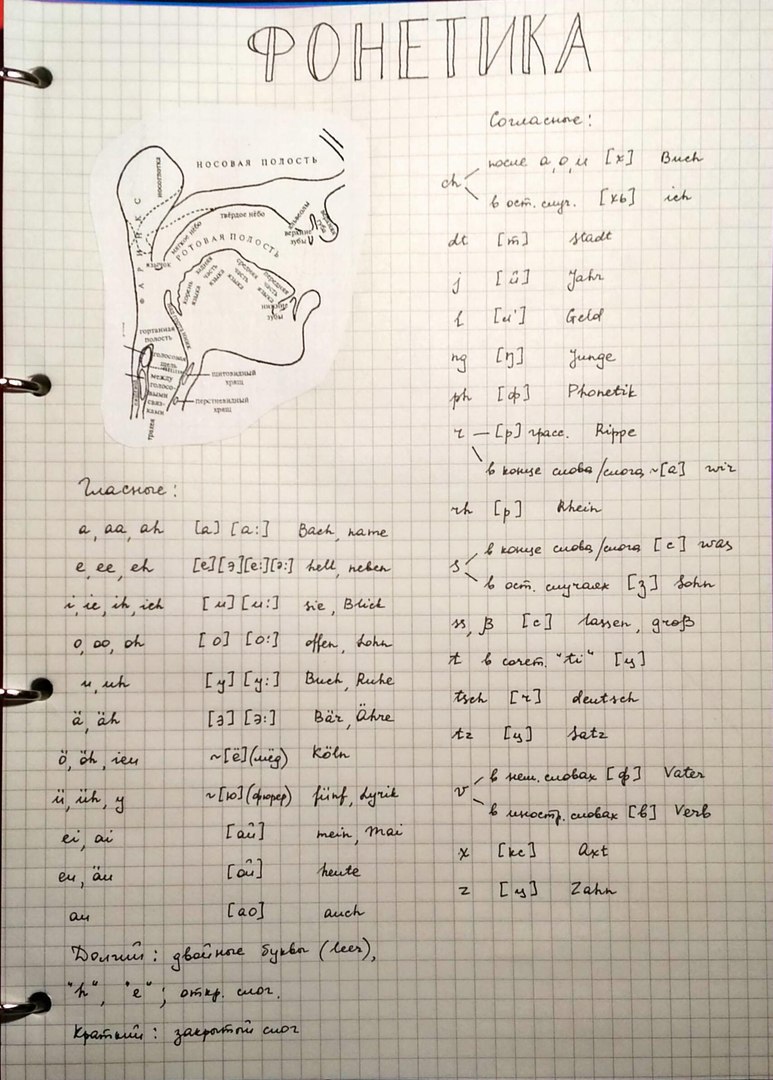 ФОНЕТИКА
НОСОВАЯ ПОЛОСТЬ
носоглотка
ФАРИНКС
твёрдое нёбо
мягкое нёбо
альвеолы
верхняя губа
верхние зубы
РОТОВАЯ ПОЛОСТЬ
язычок
корень языка
задняя часть языка
средняя часть языка
передняя часть языка
нижние зубы
надгортанник
гортанная полость
голосовая щель
между голосовыми связками
щитовидный хрящ
перстневидный хрящ
трахея
Гласные:
a, aa, ah [а] [а:] Bach, name
e, ee, eh [е][э][е:][э:] hell, neben
i, ie, ih, ieh [и] [и:] sie, Blick
o, oo, oh [о] [о:] offen, Sohn
u, uh [у] [у:] Buch, Ruhe
ä, äh [э] [э:] Bär, Ähre
ö, öh, ieu ~[ё](мёд) Köln
ü, üh, y ~[ю](фюрер) fünf, Lyrik
ei, ai [ай] mein, Mai
eu, äu [ой] heute
au [ао] auch
Долгий: двойные буквы (leer),
"h", "e"; откр. слог.
Краткий: закрытый слог
Согласные:
ch после a, o, u [х] Buch
в ост. случ. [хь] ich
dt [т] Stadt
j [й] Jahr
l [л'] Geld
ng [ŋ] Junge
ph [ф] Phonetik
r — [р] грасс. Rippe
в конце слова/слога ~[а] wir
rh [р] Rhein
s в конце слова/слога [с] was
в ост. случаях [з] Sohn
ss, ß [с] lassen, groß
t в сочет. "ti" [ц]
tsch [ч] deutsch
tz [ц] Satz
v в нем. словах [ф] Vater
в иностр. словах [в] Verb
x [кс] Axt
z [ц] Zahn